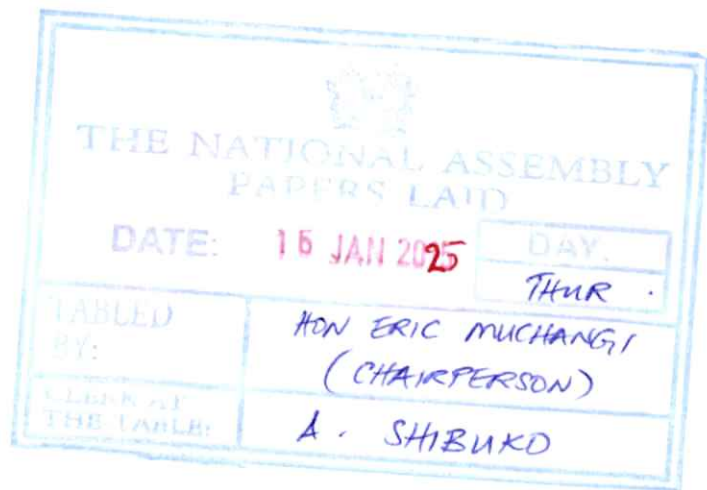 THE NATIONAL ASSEMBLY
PAPERS LAID
DATE: 16 JAN 2025 DAY.
THUR.
TABLED BY: HON ERIC MUCHANGI
(CHAIRPERSON)
CLERK AT
THE TABLE: A. SHIBUKO